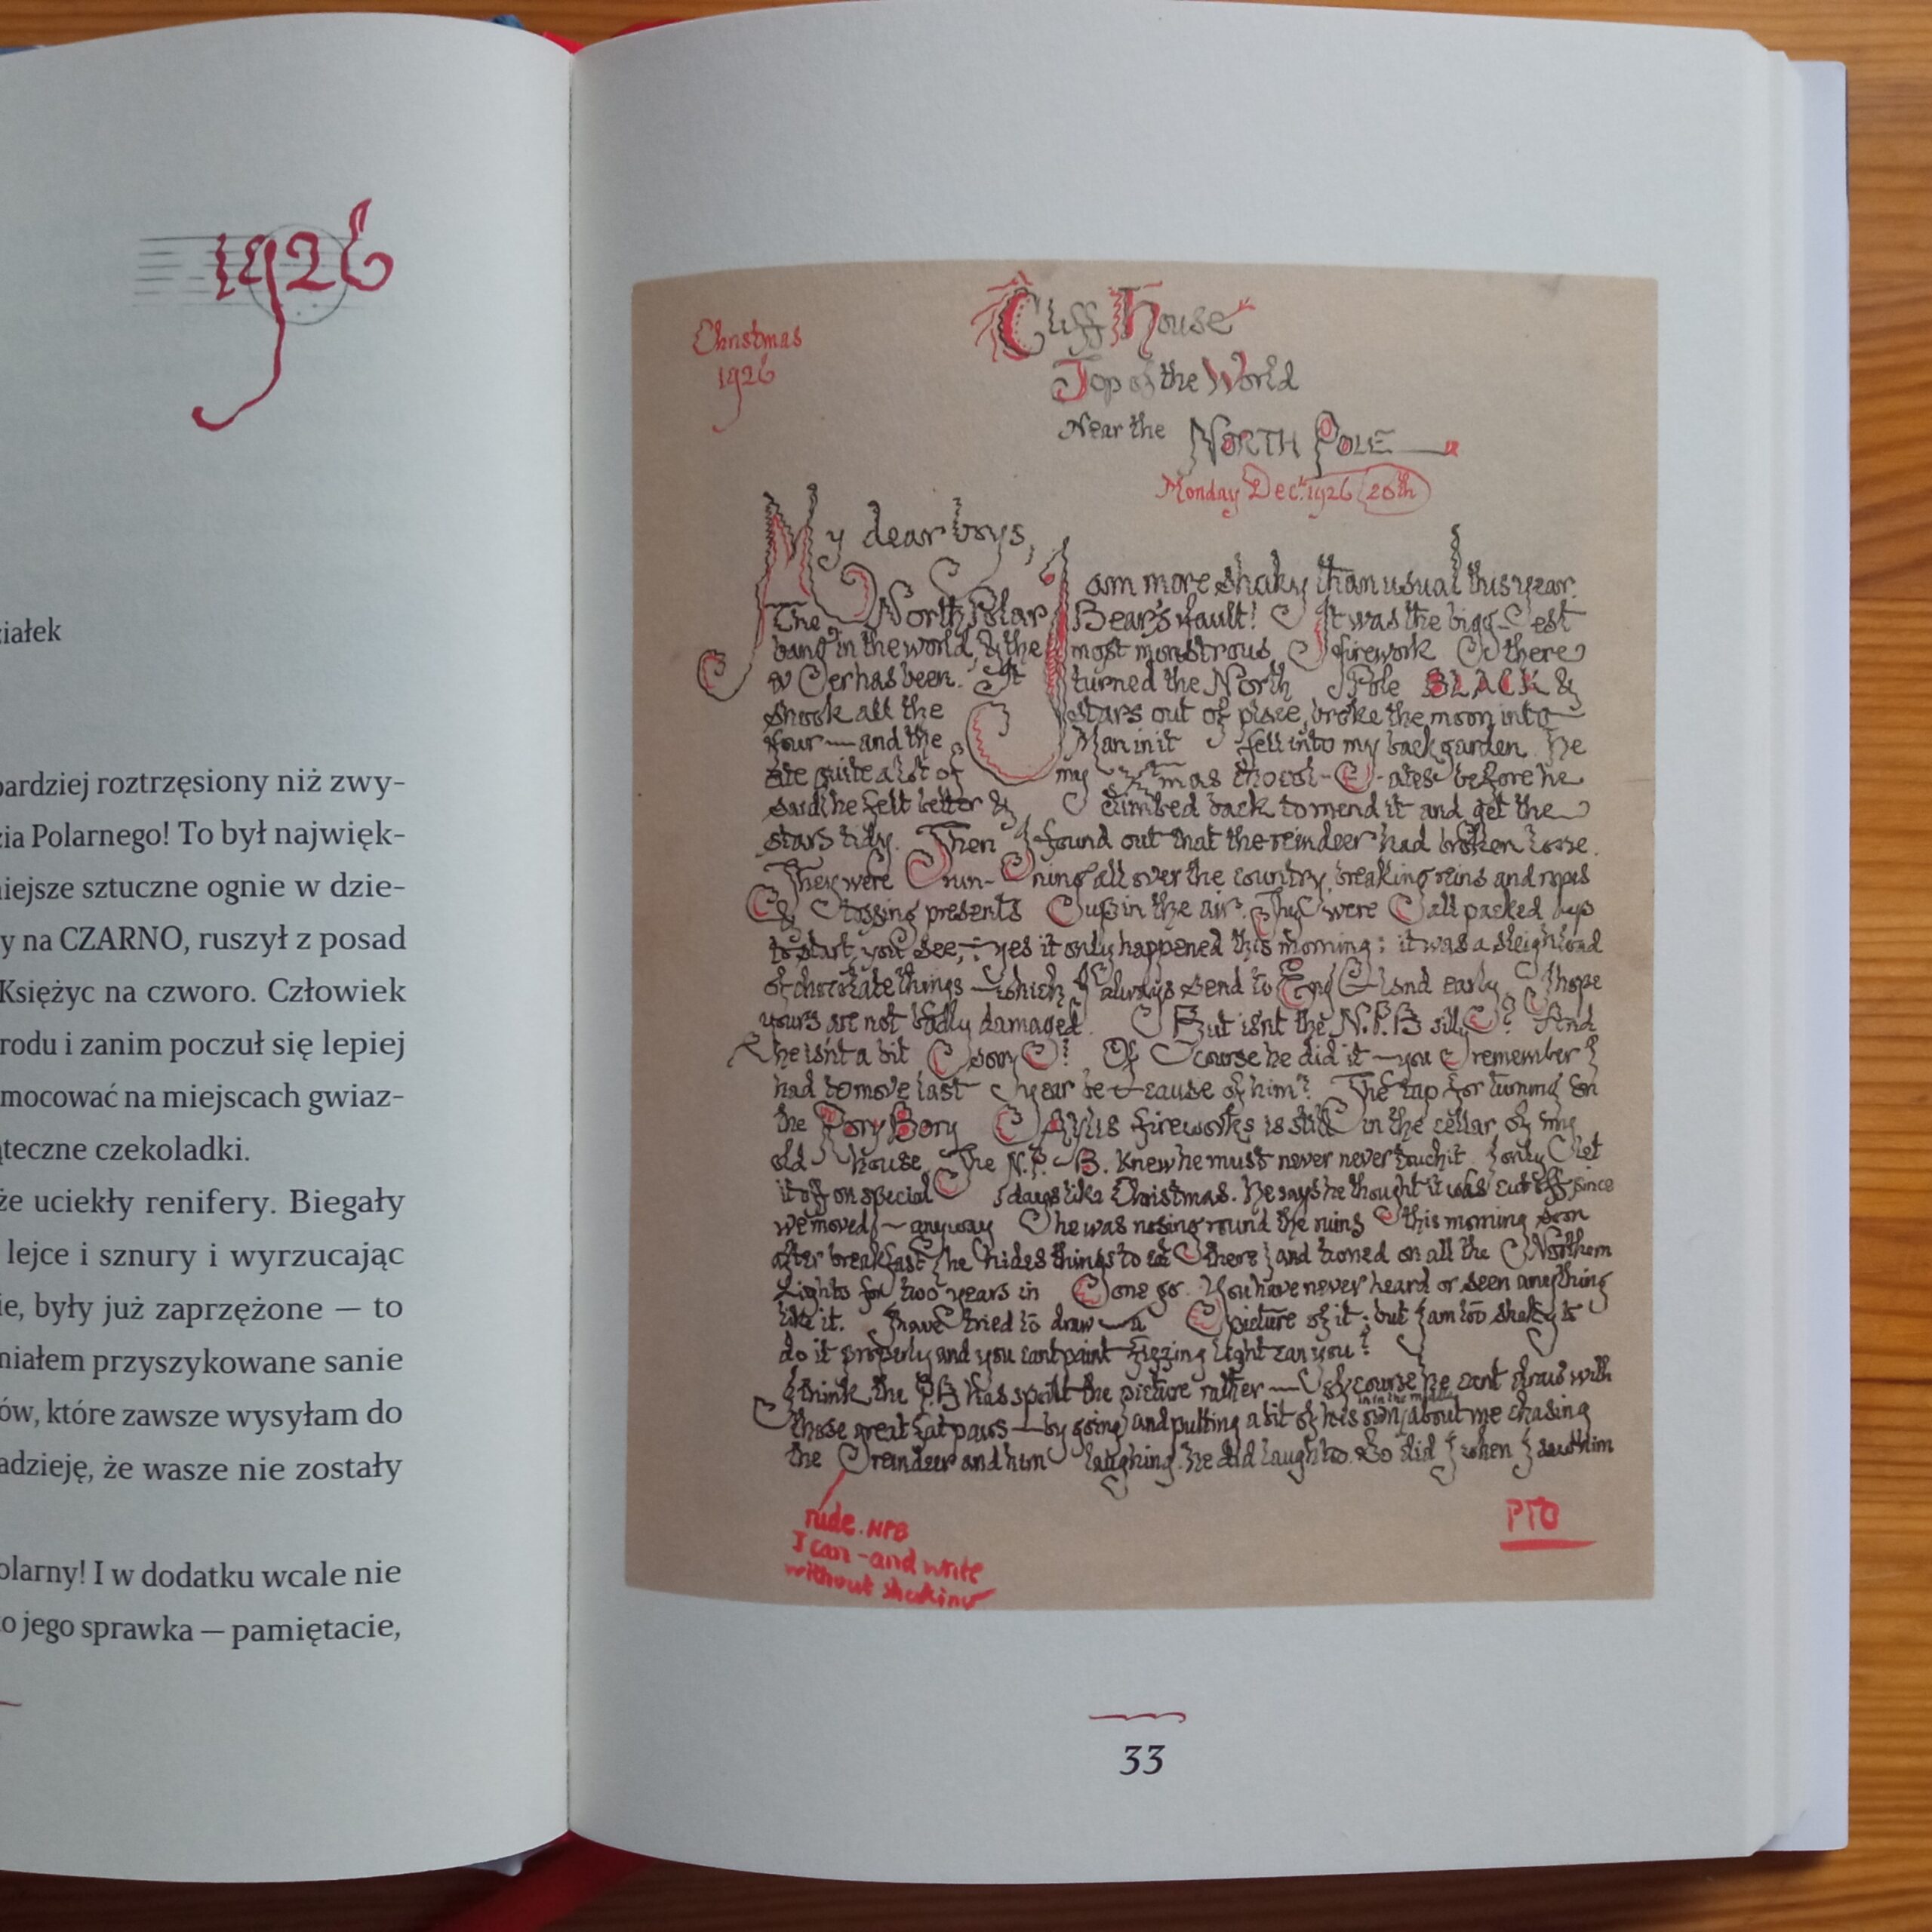 1926
działek
bardziej roztrzęsiony niż zwy-
Polarnego! To był najwięk-
sztuczne ognie w dzie-
y na CZARNO, ruszył z posad
Księżyc na czworo. Człowiek
rodu i zanim poczuł się lepiej
mocować na miejscach gwiaz-
teczne czekoladki.
że uciekły renifery. Biegały
lejce i sznury i wyrzucając
ie, były już zaprzężone — to
miałem przyszykowane sanie
ów, które zawsze wysyłam do
adzieję, że wasze nie zostały
olarny! I w dodatku wcale nie
o jego sprawka — pamiętacie,
Christmas
1926
Cliff House
Top of the World
Near the NORTH POLE
Monday Dec. 1926 20th
My dear boys,
I am more shaky than usual this year.
The North Polar Bear's fault! It was the bigg-est
bang in the world, & the most monstrous firework there
ever has been. It turned the North Pole BLACK &
shook all the stars out of place, broke the moon into
four — and the Man in it fell into my back garden. He
ate quite a lot of my Xmas chocol-ates before he
said he felt better & climbed back to mend it and get the
stars tidy. Then I found out that the reindeer had broken loose.
They were run-ning all over the country, breaking reins and ropes
& tossing presents up in the air. They were all packed up
to start, you see, — yes it only happened this morning: it was a sleighload
of chocolate things — which I always send to England early. I hope
yours are not badly damaged. But isn't the N.P.B silly? And
he isn't a bit sorry! Of course he did it — you remember I
had to move last year because of him? The tap for turning on
the Rory Bory Aylis fireworks is still in the cellar of my
old house. The N.P.B. knew he must never never touch it. I only let
it off on special days like Christmas. He says he thought it was cut off since
we moved — anyway he was nosing round the ruins this morning soon
after breakfast (he hides things to eat there) and turned on all the Northern
Lights for two years in one go. You have never heard or seen anything
like it. I have tried to draw a picture of it; but I am too shaky to
do it properly and you cant paint fizzing light can you?
I think the P.B has spoilt the picture rather — of course he cant draw with
those great fat paws — by going and putting a bit of his own in in the middle about me chasing
the reindeer and him laughing. He did laugh too. So did I when I saw him
rude. NPB
I can - and write
without shaking
PTO
33